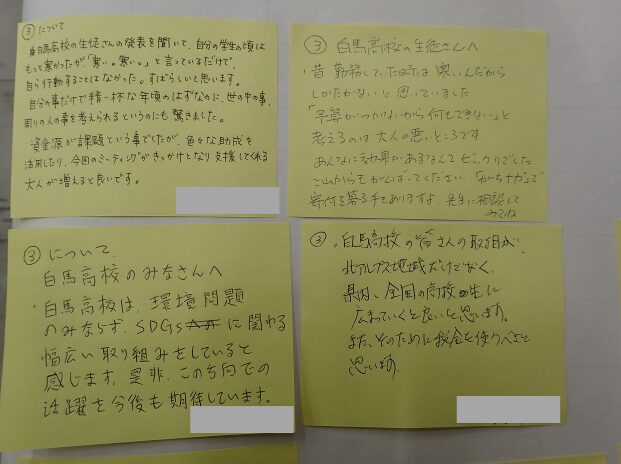 ③について
白馬高校の生徒さんの発表を聞いて、自分の学生の頃は
もっと寒かったが、「寒い。寒い。」と言っているだけで、
自ら行動することはなかった。すばらしいと思います。
自分の事だけで精一杯な年頃のはずなのに、世の中の事、
周りの人の事を考えられるというのにも驚きました。
資金源が課題という事でしたが、色々な助成を
活用したり、今回のミーティングがきっかけとなり支援してくれる
大人が増えると良いです。
③ 白馬高校の生徒さんへ
・昔勤務していた時は寒いんだから
しかたがないと思っていました。
「予算がつかないから何もできない」と
考えるのは大人の悪いところです。
あんなに効果があるなんてビックリでした
これからもがんばってください。「がちナガ」で
寄付を募る手もありますよ。先生に相談して
みてね
③について
白馬高校のみなさんへ
・白馬高校は、環境問題
のみならず、SDGsに関わる
幅広い取り組みをしていると
感じます。是非、この方向での
活躍を今後も期待しています。
③・白馬高校の皆さんの取組が、
北アルプス地域だけでなく、
県内、全国の高校生に
広まっていくと良いと思います。
また、そのために税金を使うべきと
思います。